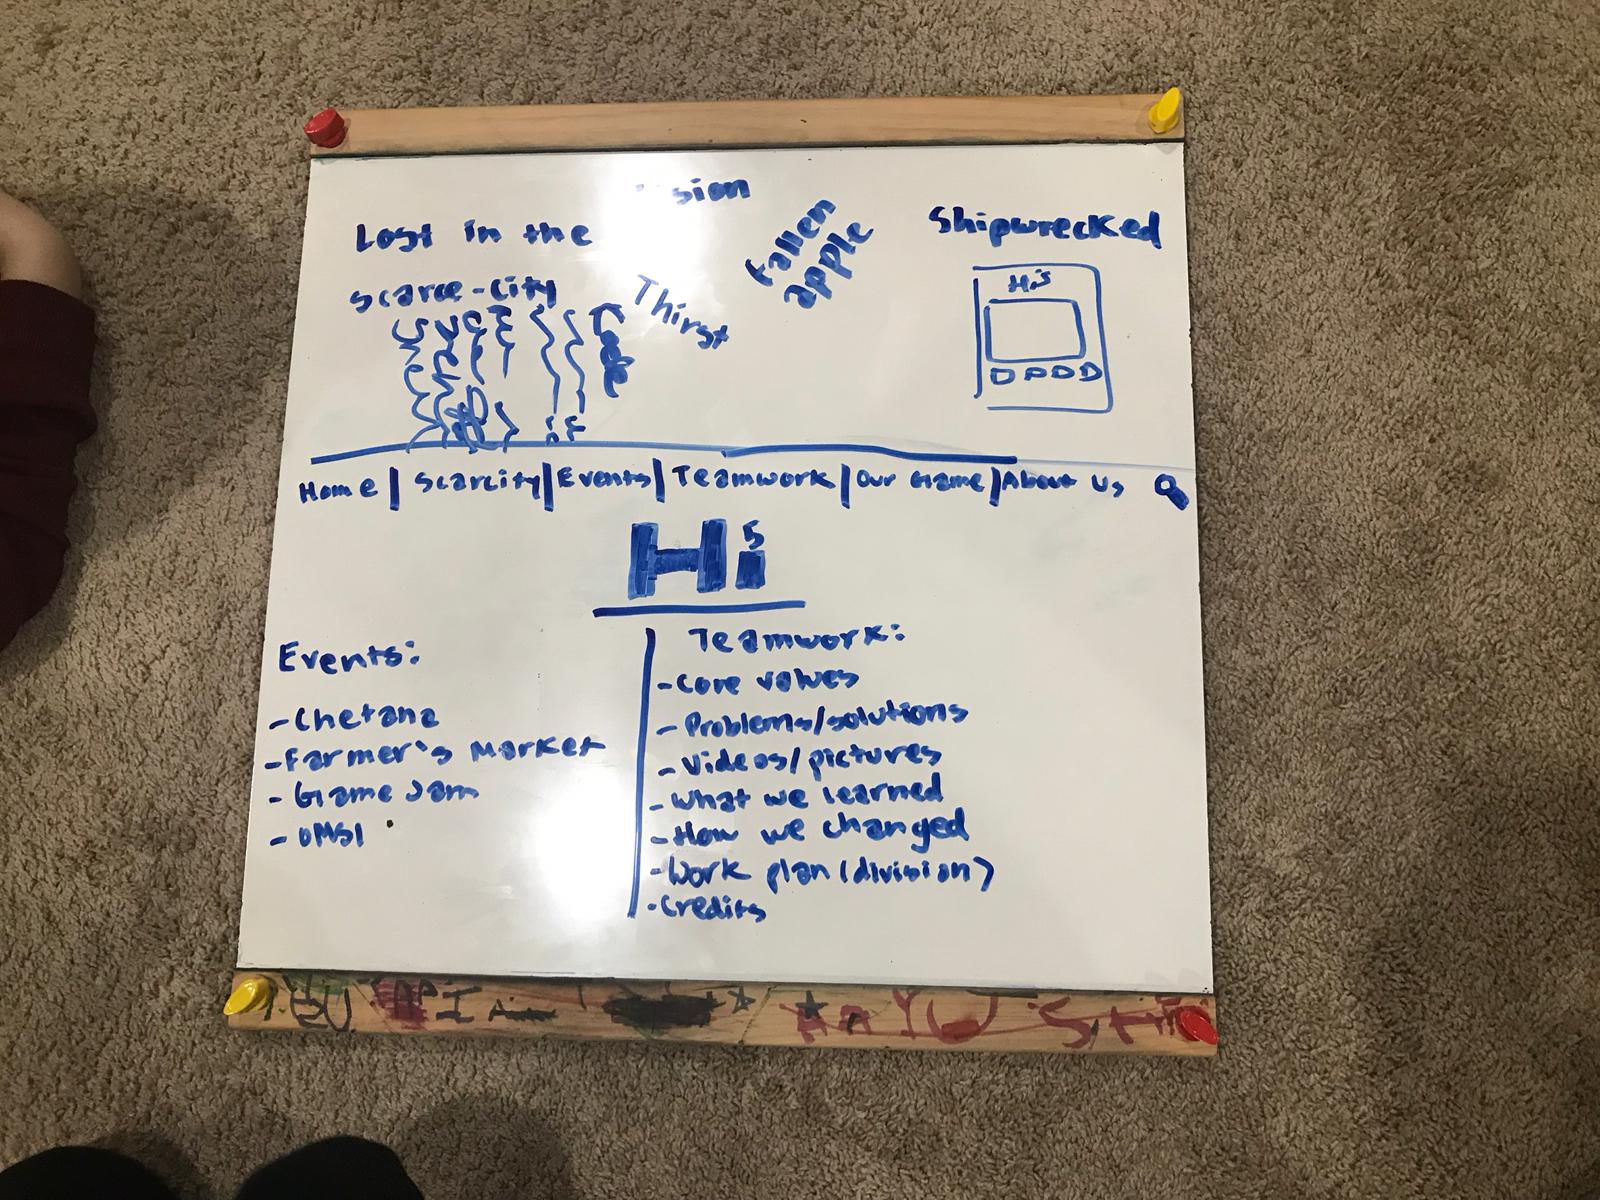 Lost in the
Scarce-City
Code
Thirst
Fallen
apple
Shipwrecked
Hi5
Home | Scarcity | Events | Teamwork | Our Game | About Us
Hi5
Events:
-Chetana
-Farmer's Market
- Game Jam
- OMSI
Teamwork:
-Core values
- Problems/solutions
- Videos/pictures
- What we learned
- How we changed
- Work plan (division)
- Credits